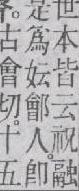 世本皆云祝融
是為妘鄶人。卽
古會切。十五